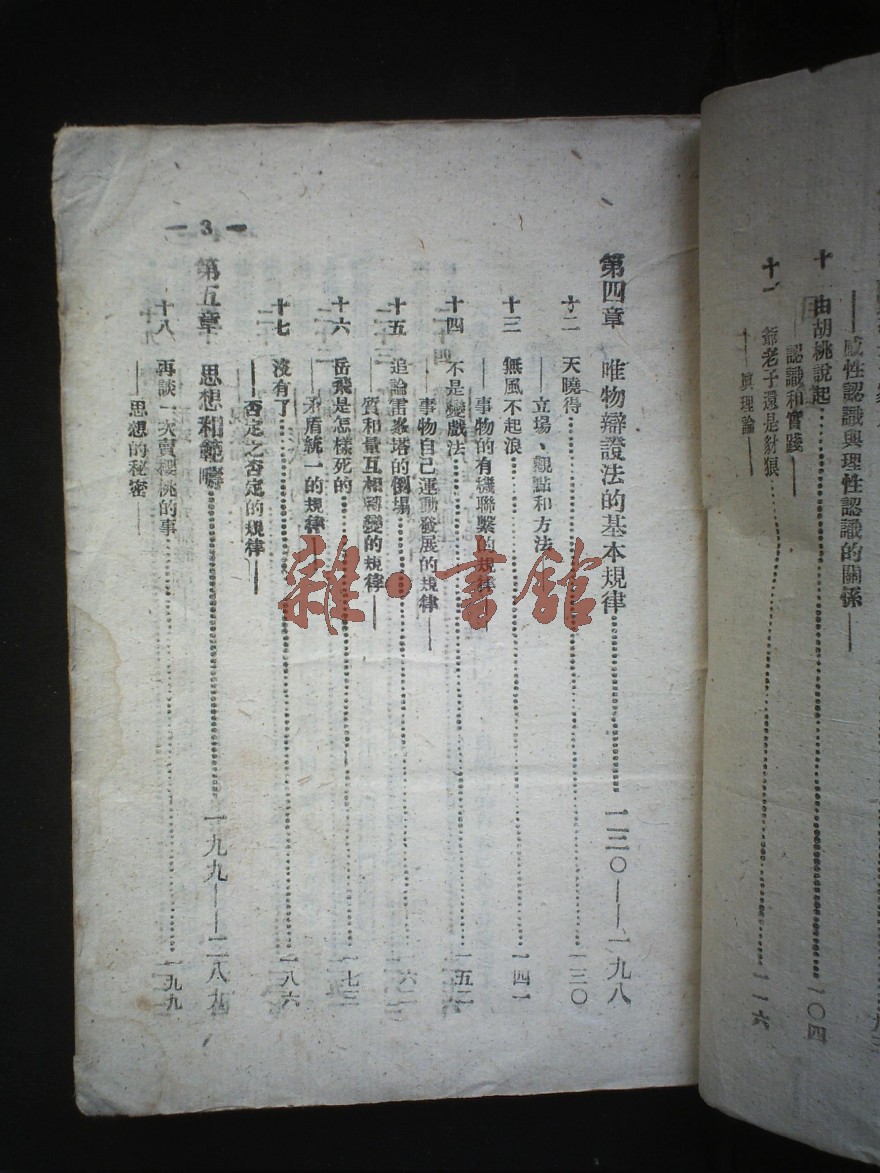 ——感性認識與理性認識的關係——
十 由胡桃說起……一〇四
——認識和實踐——
十一 爺老子還是豺狼……一一六
——眞理論——
第四章 唯物辯證法的基本規律……一三〇——一九八
十二 天曉得……一三〇
——立場、觀點和方法——
十三 無風不起浪……一四一
——事物的有機聯繫的規律——
十四 不是變戲法……一五二
——事物自己運動發展的規律——
十五 追論雷峯塔的倒塌……一六二
——質和量互相轉變的規律——
十六 岳飛是怎樣死的……一七三
——矛盾統一的規律——
十七 沒有了……一八六
——否定之否定的規律——
— 3 —
第五章 思想和範疇……一九九——二八九
十八 再談一次賣櫻桃的事……一九九
——思想的秘密——
雜·書館